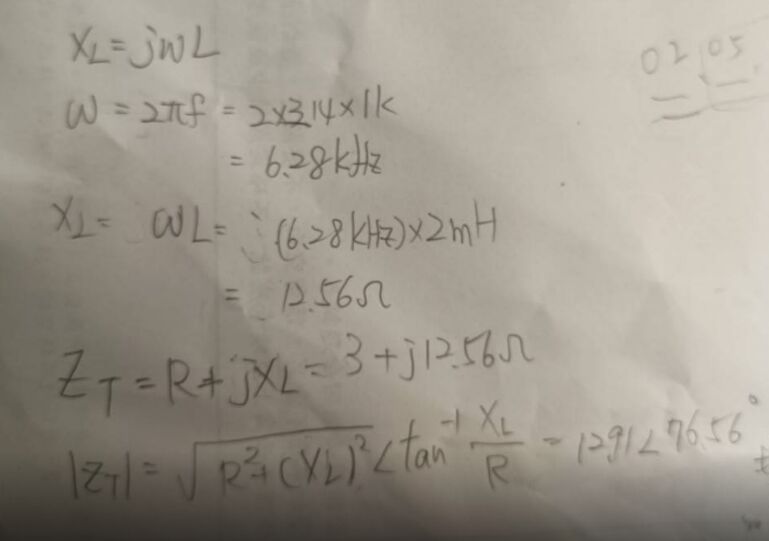 X_L = jωL
02 05
ω = 2πf = 2×3.14×1k
= 6.28kHz
X_L = ωL = j(6.28kHz)×2mH
= 12.56Ω
Z_T = R+jX_L = 3+j12.56Ω
|Z_T| = √(R²+(X_L)²) ∠tan⁻¹ X_L/R = 12.91∠76.56°